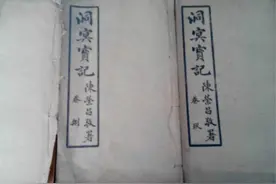 洞冥寶記
陳榮昌敬署
卷捌
洞冥寶記
陳榮昌敬署
卷玖